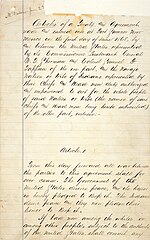 Articles of a Treaty and Agreement
made and entered into at Fort Sumner New
Mexico on the first day of June 1868, by
and between the United States represented
by its Commissioners Lieutenant General
W. T. Sherman and Colonel Samuel F.
Tappan of the one part, and the Navajo
Nation or tribe of Indians represented by
their Chiefs and Head men duly authorized
and empowered to act for the whole people
of said Nation or tribe (the names of said
Chiefs and Head men being hereto subscribed)
of the other part, witness:
Article 1
From this day forward all war between
the parties to this agreement shall for
ever cease. The Government of the
United States desires peace, and its honor
is hereby pledged to keep it. The Indians
desire peace, and they now pledge their
honor to keep it.
If bad men among the whites, or
among other people, subject to the authority
of the United States shall commit any